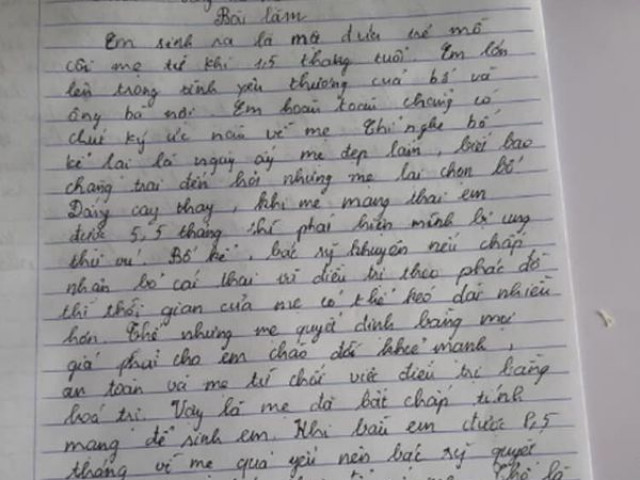 Bài làm
Em sinh ra là một đứa trẻ mồ
côi mẹ từ khi 1,5 tháng tuổi. Em lớn
lên trong tình yêu thương của bố và
ông bà nội. Em hoàn toàn chẳng có
chút ký ức nào về mẹ. Chỉ nghe bố
kể lại là ngày ấy mẹ đẹp lắm, biết bao
chàng trai đến hỏi nhưng mẹ lại chọn bố.
Đắng cay thay, khi mẹ mang thai em
được 5,5 tháng thì phát hiện mình bị ung
thư vú. Bố kể, bác sỹ khuyên nếu chấp
nhận bỏ cái thai và điều trị theo phác đồ
thì thời gian của mẹ có thể kéo dài nhiều
hơn. Thế nhưng mẹ quyết định bằng mọi
giá phải cho em chào đời khỏe mạnh,
an toàn và mẹ từ chối việc điều trị bằng
hoá trị. Vậy là mẹ đã bất chấp tính
mạng để sinh em. Khi bầu em được 7,5
tháng vì mẹ quá yếu nên bác sỹ quyết